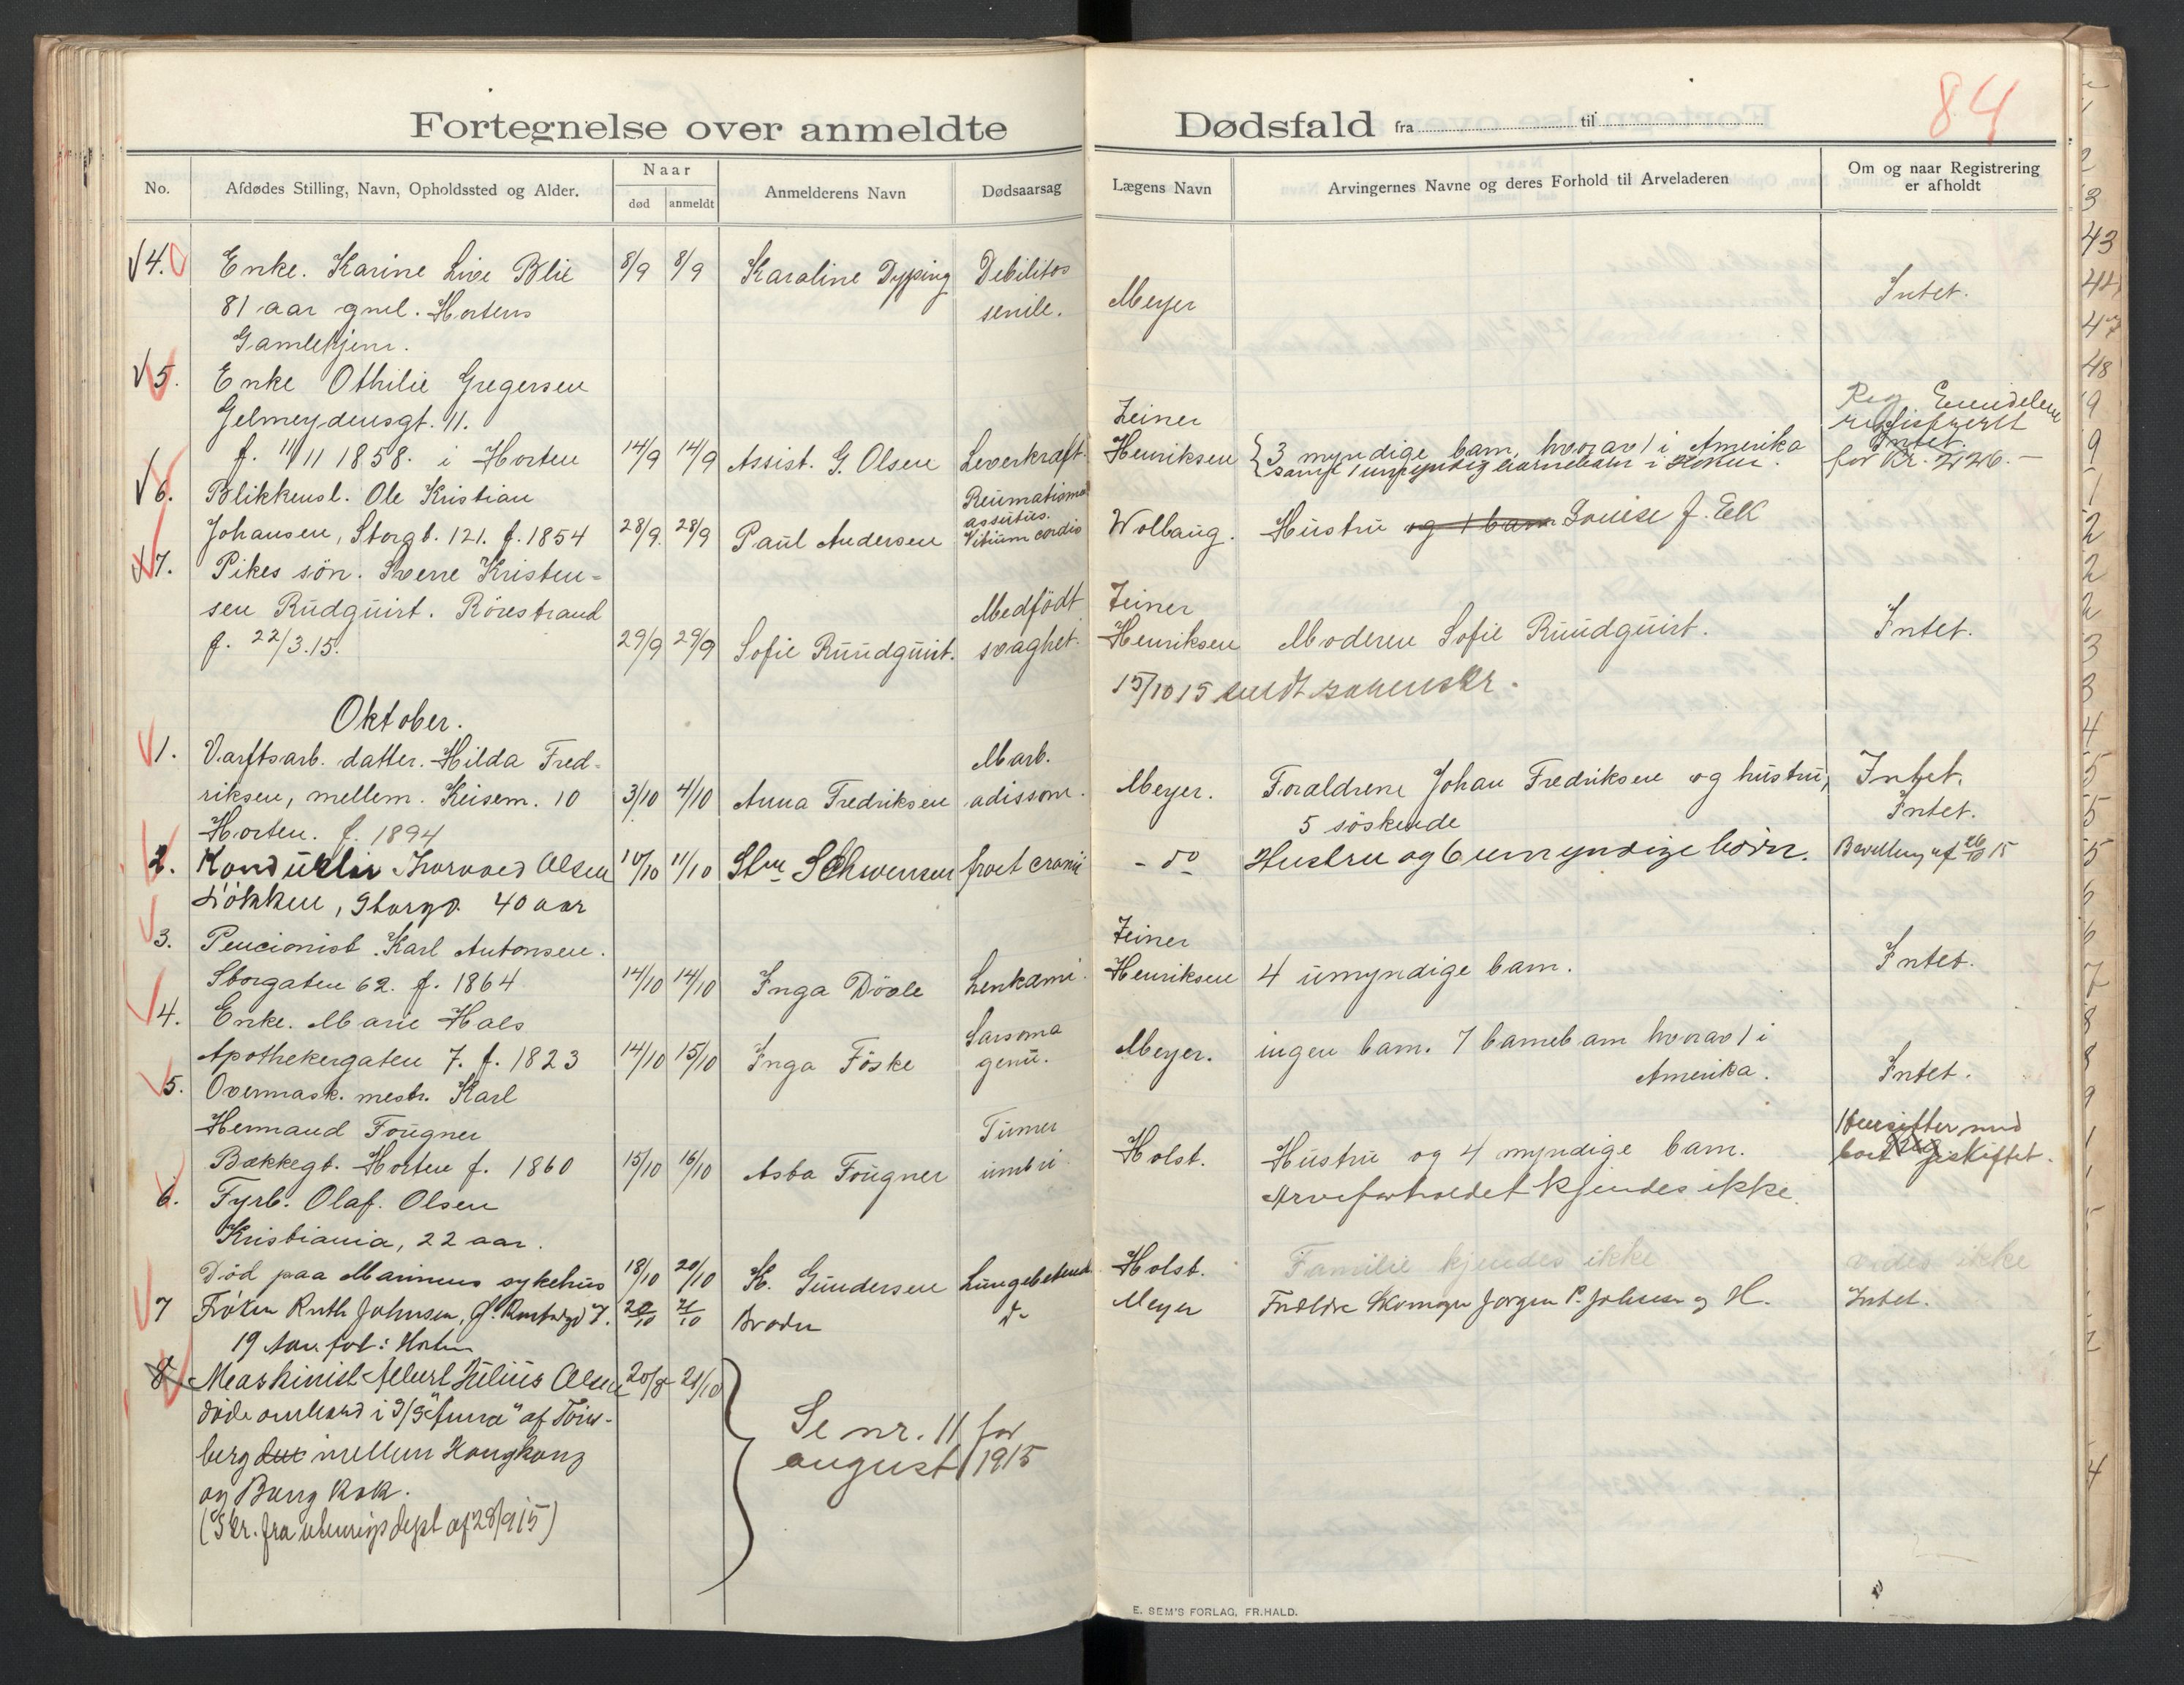 Fortegnelse over anmeldte Dødsfald fra til
84
No.
Afdødes Stilling, Navn, Opholdssted og Alder.
Naar
død anmeldt
Anmelderens Navn
Dødsaarsag
Lægens Navn
Arvingernes Navne og deres Forhold til Arveladeren
Om og naar Registrering
er afholdt
4. Enke. Karine Live Blie 8/9 8/9 Karoline Dyping Debilitas
81 aar gml. Hortens senile. Meyer Intet.
Gamlehjem.
5. Enke Othilie Gregersen
Gelmeydensgt. 11. Zeiner
f. 11/11 1858. i Horten 14/9 14/9 Assist. G. Olsen Leverkræft. Henriksen 3 myndige barn, hvorav 1 i Amerika
samt 1 umyndig barnebarn i Horten.
registreret
Intet.
for Kr. 2226.-
6. Blikkensl. Ole Kristian Reumatisme
Johansen, Storgt. 121. f. 1854 28/9. 28/9 Paul Andersen Vitium cordis Wolbaug. Hustru og 1 barn Louise f. Eek
7. Pikes søn. Sverre Kristen=
sen Rudquist. Rørestrand Medfødt Zeiner
f. 22/3.15. 29/9 29/9 Sofie Ruudquist. svaghet. Henriksen Moderen Sofie Ruudquist. Intet.
15/10 15
Oktober.
1. Varftsarb. datter. Hilda Fred- Marb.
riksen, mellem. Keisem. 10 3/10 4/10 Anna Fredriksen adissoni. Meyer. Forældrene Johan Fredriksen og hustru, Intet.
Horten. f. 1894 5 søskende Intet.
2. Konduktør Thorvald Olsen 10/10 11/10 Schwensen fract cranii - do Hustru og 6 umyndige børn. Bevilling af 26/10 15
Løkken, Storgt. 40 aar
3. Pencionist. Karl Antonsen. Zeiner
Storgaten 62. f. 1864 14/10 14/10 Inga Døvle Lenkæmi. Henriksen 4 umyndige barn. Intet.
4. Enke. Marie Hals Sarsoma
Apothekergaten 7. f. 1823 14/10 15/10 Inga Føske genu. Meyer. ingen barn. 7 barnebarn hvorav 1 i
Amerika. Intet.
5. Overmask. mestr. Karl
Hermand Fougner Tumer
Bakkegt. Horten f. 1860 15/10 16/10 Asta Fougner umbri Holst. Hustru og 4 myndige barn.
Arveforholdet kjendes ikke.
6. Fyrb. Olaf. Olsen
Kristiania, 22 aar.
Død paa Marinens sykehus 18/10 20/10 K. Gundersen Lungebetend. Holst. Familie kjendes ikke vides ikke
7 Frøken Ruth Johnsen, 20/10 21/10 Broder do Meyer Forældre Skomager Jørgen P. Johnsen og H. Intet.
19 Aar født i Horten
8 Maskinist Albert Julius Olsen 20/8 21/10
døde ombord i D/S "Anna" af Tøns-
berg den mellem Hongkong
og Bangkok.
(Skr. fra utenrigsdept af 28/9 15)
Se nr. 11 for
august 1915
E. SEM'S FORLAG, FR.HALD.